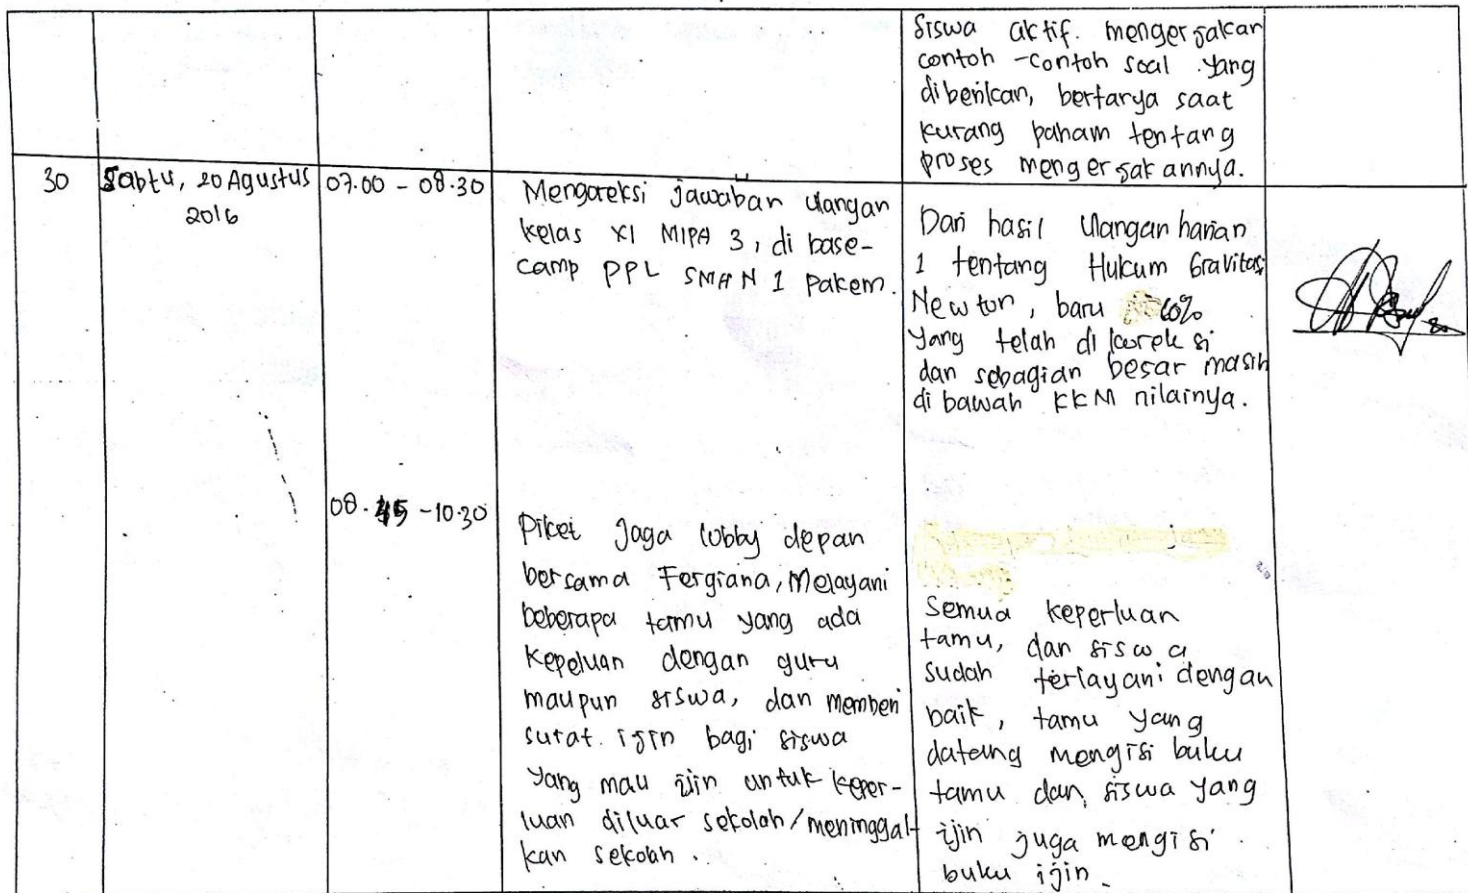 siswa aktif. mengerjakan
contoh - contoh soal yang
diberikan, bertanya saat
kurang paham tentang
proses mengerjakannya.
30
Sabtu, 20 Agustus
2016
07.00 - 08.30
Mengoreksi jawaban ulangan
kelas XI MIPA 3, di base-
camp PPL SMAN 1 Pakem.
Dari hasil ulangan harian
1 tentang Hukum Gravitasi
Newton, baru 60%
yang telah dikoreksi
dan sebagian besar masih
di bawah KKM nilainya.
08.45 - 10.30
Piket jaga lobby depan
bersama Fergiana, Melayani
beberapa tamu yang ada
kepeluan dengan guru
maupun siswa, dan memberi
surat ijin bagi siswa
yang mau ijin untuk keper-
luan diluar sekolah/meninggal-
kan sekolah.
Semua keperluan
tamu, dan siswa
sudah terlayani dengan
baik, tamu yang
datang mengisi buku
tamu dan siswa yang
ijin juga mengisi
buku ijin.